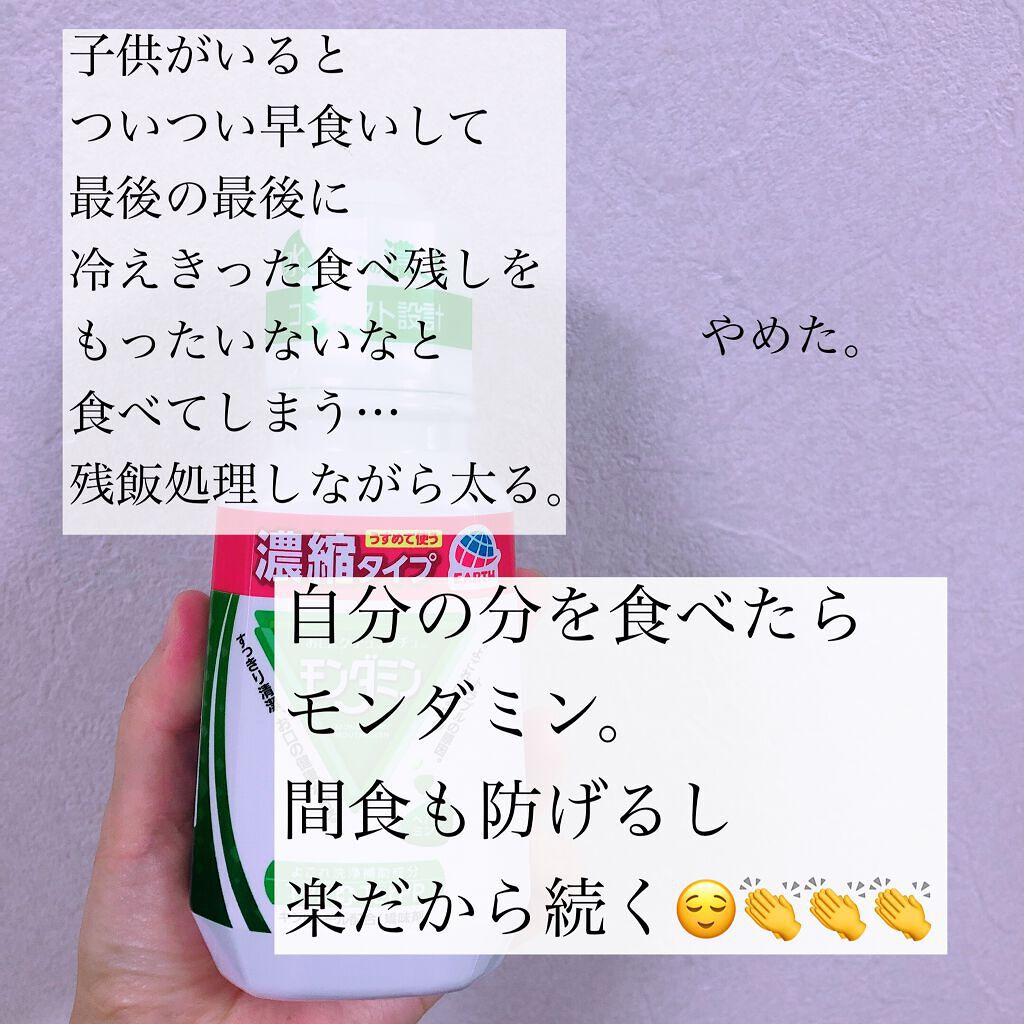 子供がいると
ついつい早食いして
最後の最後に
冷えきった食べ残しを
もったいないなと
食べてしまう…
残飯処理しながら太る。
やめた。
コンパクト設計
うすめて使う
濃縮タイプ
EARTH
自分の分を食べたら
モンダミン。
間食も防げるし
楽だから続く😌👏👏👏
すっきり清潔
モンダミン